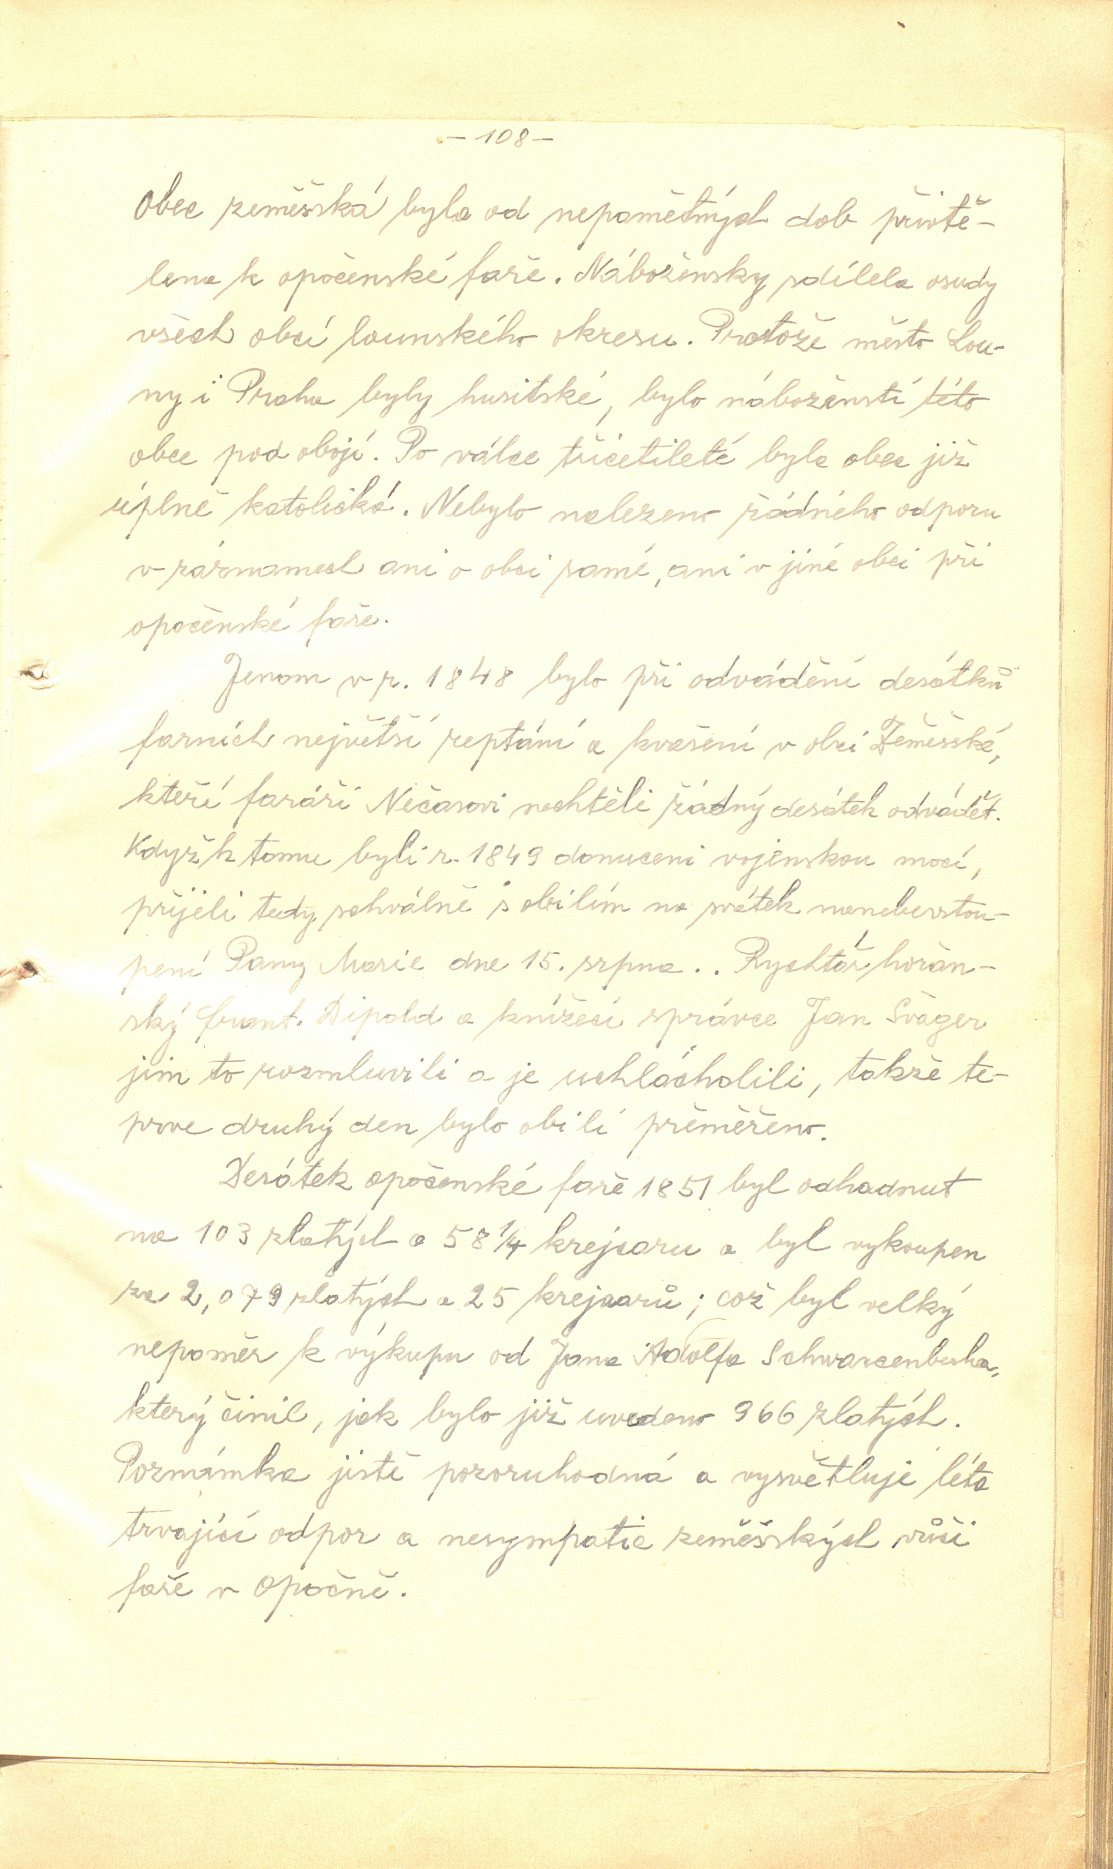 – 108 –
Obec zeměšská byla od nepamětných dob přivtě-
lena k opočenské faře. Nábožensky sdílela osudy
všech obcí lounského okresu. Protože město Lou-
ny i Praha byly husitské, bylo náboženstí této
obce pod obojí. Po válce třicetileté byla obec již
úplně katolická. Nebylo nalezeno žádného odporu
v záznamech ani v obci samé, ani v jiné obci při
opočenské faře.
Jenom v r. 1848 bylo při odvádění desátků
farních největší reptání a kvašení v obci Zeměšské,
kteří faráři Nečasovi nechtěli žádný desátek odvádět.
Když k tomu byli r. 1849 donuceni vojenskou mocí,
přijeli tedy schválně s obilím na svátek nanebevstou-
pení Pany Marie dne 15. srpna.. Rychtář horan-
ský frant. Dipold a knížecí správce Jan Švager
jim to rozmluvili a je uchlácholili, takže te-
prve druhý den bylo obilí přeměřeno.
Desátek opočenské faře 1851 byl odhadnut
na 103 zlatých a 58 1/4 krejcaru a byl vykoupen
za 2,079 zlatých a 25 krejcarů; což byl velký
nepoměr k výkupu od Jana Adolfa Schwarcenberka,
který činil, jak bylo již uvedeno 966 zlatých.
Poznámka jistě pozoruhodná a vysvětluje léta
trvající odpor a nesympatie zeměšských vůči
faře v Opočně.